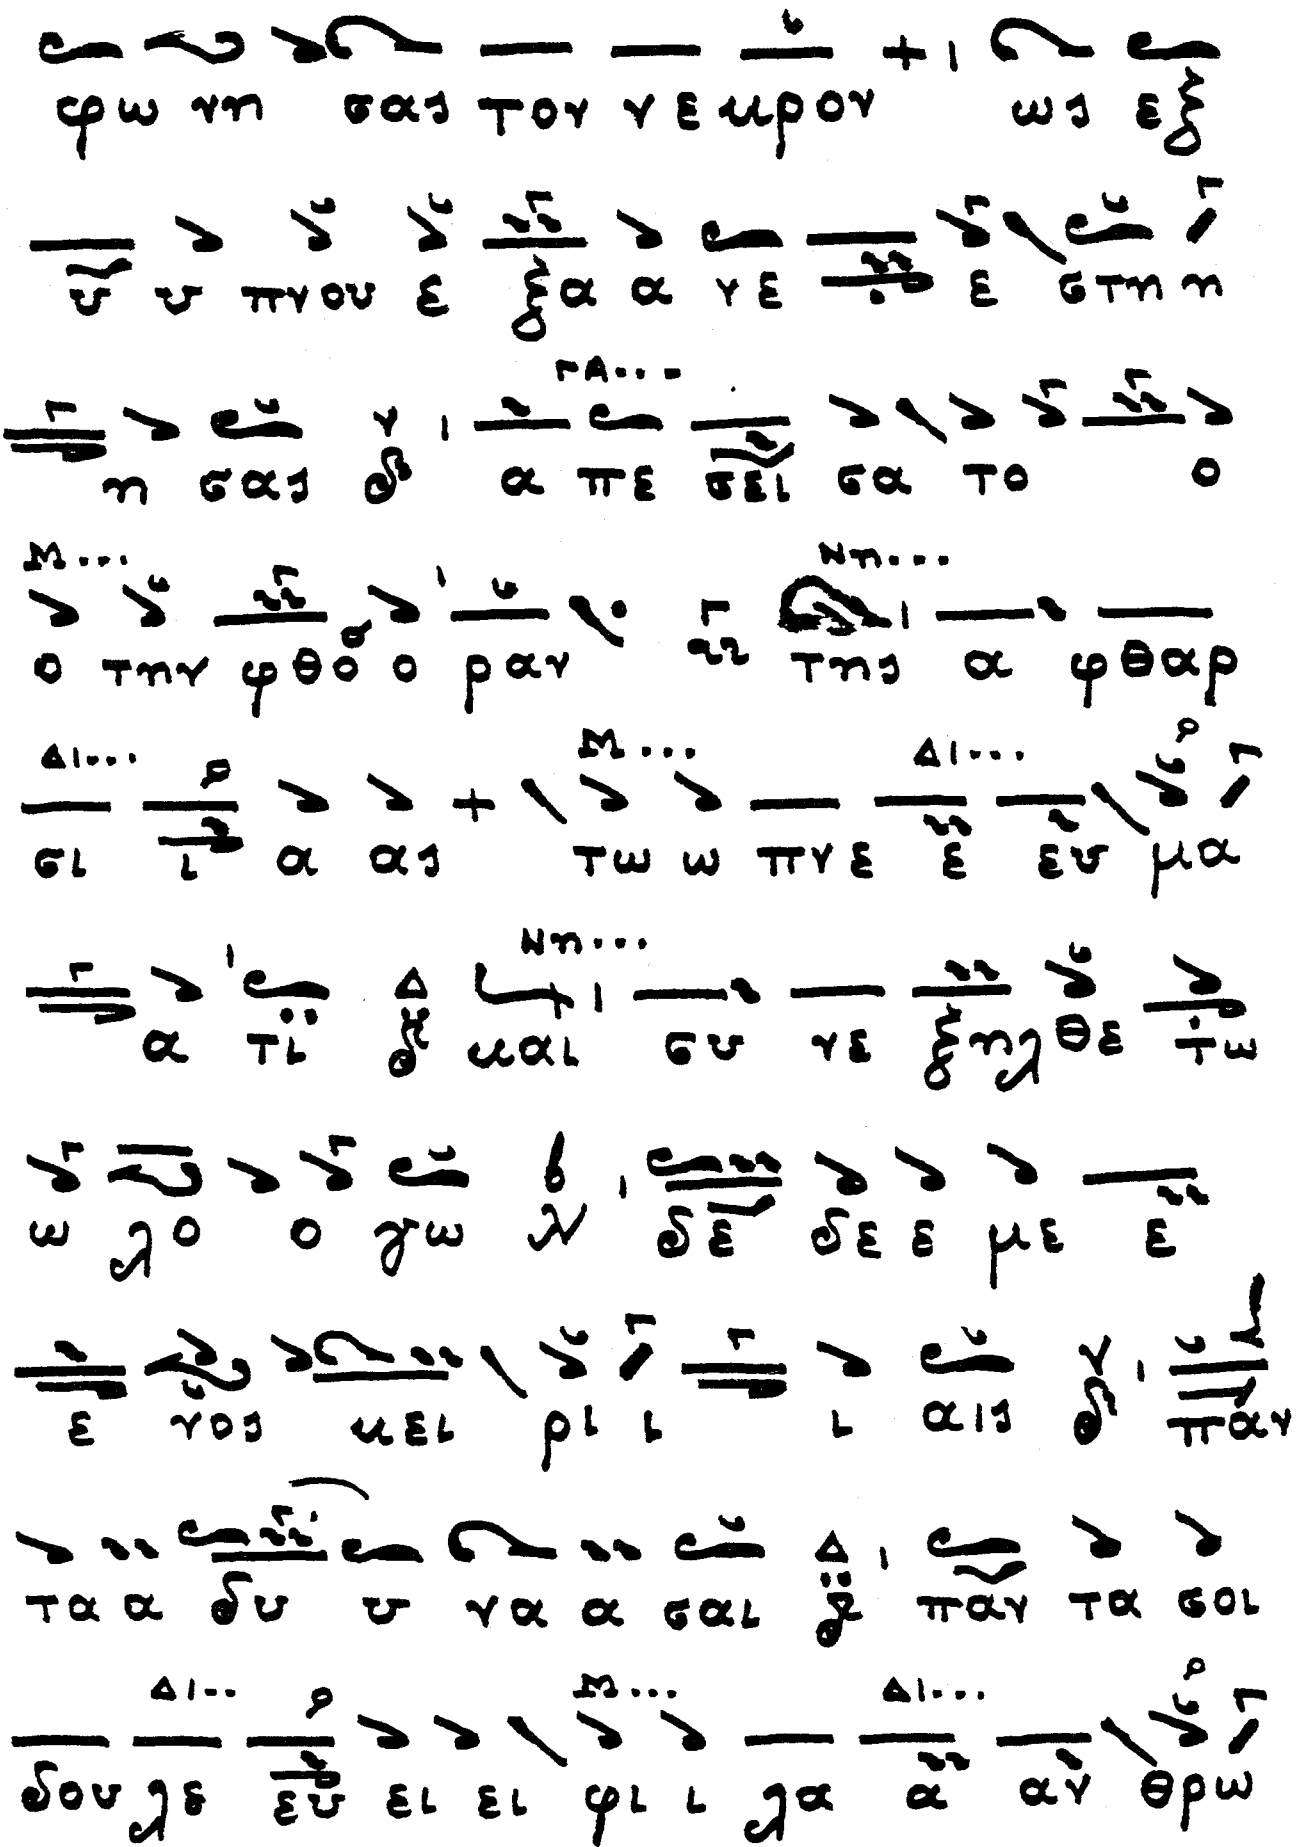 φω νη σας τον νε κρον ως εξ
υ υ πνου ε ξα α νε ε στη η
η σας α πε σει σα το ο
ο την φθο ο ραν της α φθαρ
σι ι α ας τω ω πνε ε ευ μα
α τι και συ νε ξηλ θε τω
ω λο ο γω δε δε ε με ε
ε νος κει ρι ι ι αις παν
τα α δυ υ να α σαι παν τα σοι
δου λε ευ ει ει φι ι λα α αν θρω